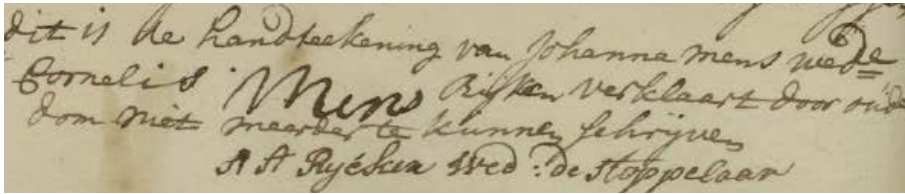 dit is de handteekening van Johanna mens wede
Cornelis Mens Rijken verklaart door oude
dom niet meerder te kunnen schrijven
A A Ryéken Wed: de Stoppelaar